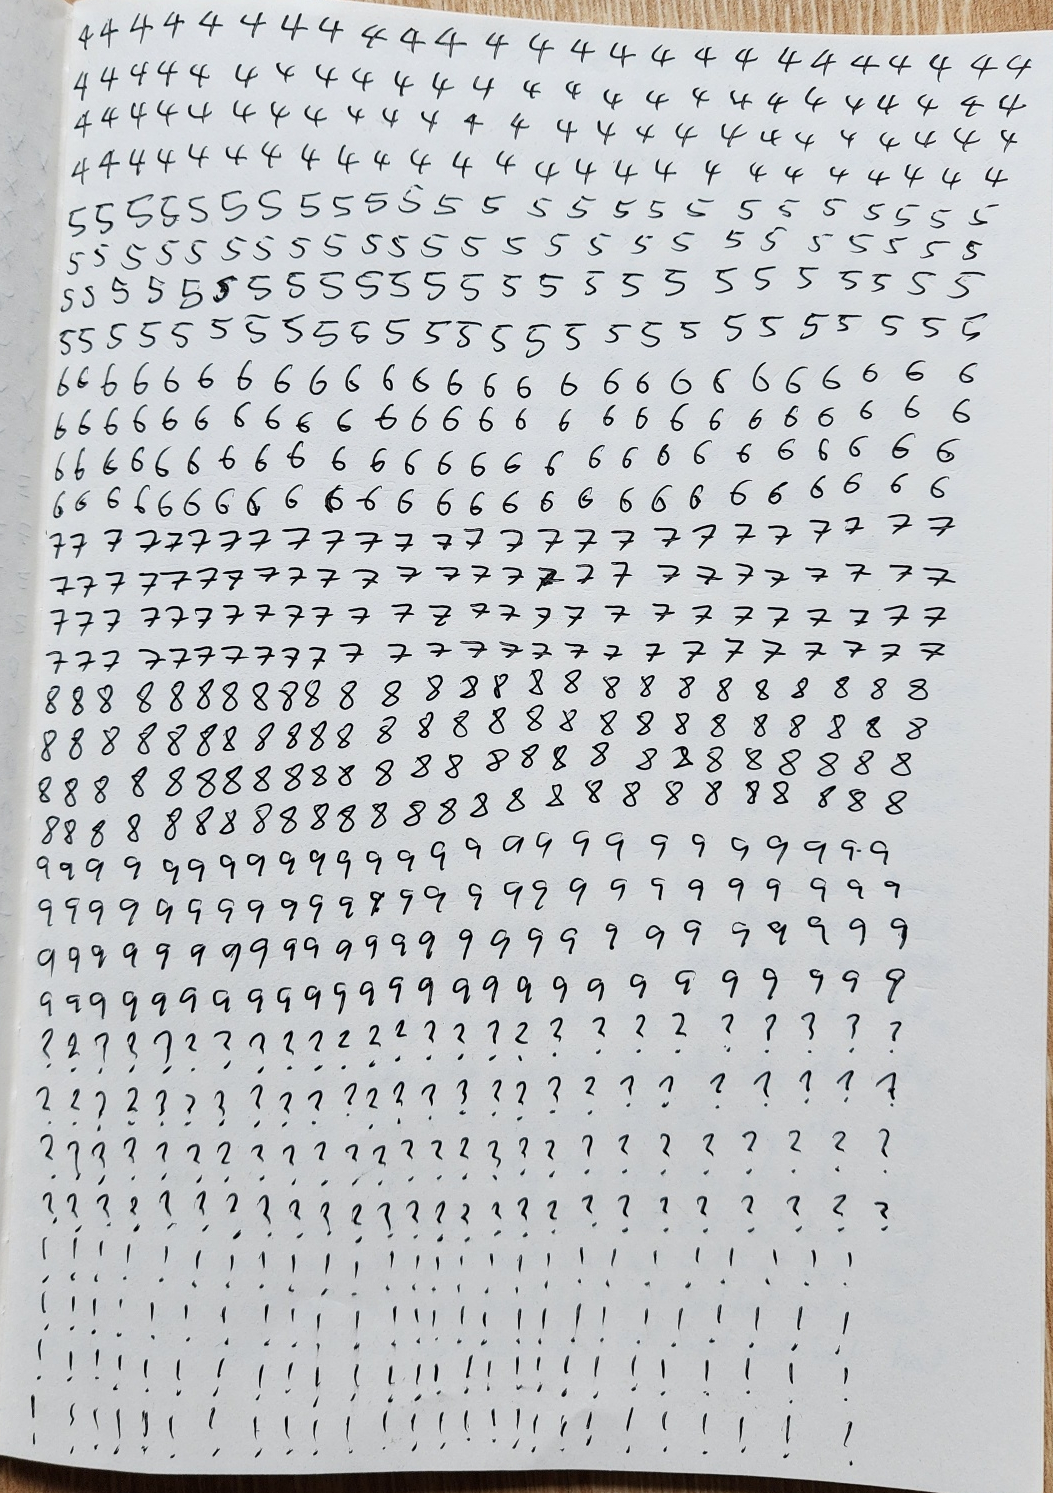 4 4 4 4 4 4 4 4 4 4 4 4 4 4 4 4 4 4 4 4 4 4 4 4 4
4 4 4 4 4 4 4 4 4 4 4 4 4 4 4 4 4 4 4 4 4 4 4 4 4
4 4 4 4 4 4 4 4 4 4 4 4 4 4 4 4 4 4 4 4 4 4 4 4 4
4 4 4 4 4 4 4 4 4 4 4 4 4 4 4 4 4 4 4 4 4 4 4 4 4
5 5 5 5 5 5 5 5 5 5 5 5 5 5 5 5 5 5 5 5 5 5 5 5 5
5 5 5 5 5 5 5 5 5 5 5 5 5 5 5 5 5 5 5 5 5 5 5 5 5
5 5 5 5 5 5 5 5 5 5 5 5 5 5 5 5 5 5 5 5 5 5 5 5 5
5 5 5 5 5 5 5 5 5 5 5 5 5 5 5 5 5 5 5 5 5 5 5 5 5 5
6 6 6 6 6 6 6 6 6 6 6 6 6 6 6 6 6 6 6 6 6 6 6 6 6 6
6 6 6 6 6 6 6 6 6 6 6 6 6 6 6 6 6 6 6 6 6 6 6 6 6 6
6 6 6 6 6 6 6 6 6 6 6 6 6 6 6 6 6 6 6 6 6 6 6 6 6 6
6 6 6 6 6 6 6 6 6 6 6 6 6 6 6 6 6 6 6 6 6 6 6 6 6 6
7 7 7 7 7 7 7 7 7 7 7 7 7 7 7 7 7 7 7 7 7 7 7 7 7 7
7 7 7 7 7 7 7 7 7 7 7 7 7 7 7 7 7 7 7 7 7 7 7 7 7 7
7 7 7 7 7 7 7 7 7 7 7 7 7 7 7 7 7 7 7 7 7 7 7 7 7 7
7 7 7 7 7 7 7 7 7 7 7 7 7 7 7 7 7 7 7 7 7 7 7 7 7 7
8 8 8 8 8 8 8 8 8 8 8 8 8 8 8 8 8 8 8 8 8 8 8 8 8 8
8 8 8 8 8 8 8 8 8 8 8 8 8 8 8 8 8 8 8 8 8 8 8 8 8 8
8 8 8 8 8 8 8 8 8 8 8 8 8 8 8 8 8 8 8 8 8 8 8 8 8 8
8 8 8 8 8 8 8 8 8 8 8 8 8 8 8 8 8 8 8 8 8 8 8 8 8 8
9 9 9 9 9 9 9 9 9 9 9 9 9 9 9 9 9 9 9 9 9 9 9 9 9 9
9 9 9 9 9 9 9 9 9 9 9 9 9 9 9 9 9 9 9 9 9 9 9 9 9 9
9 9 9 9 9 9 9 9 9 9 9 9 9 9 9 9 9 9 9 9 9 9 9 9 9 9
9 9 9 9 9 9 9 9 9 9 9 9 9 9 9 9 9 9 9 9 9 9 9 9 9 9
? ? ? ? ? ? ? ? ? ? ? ? ? ? ? ? ? ? ? ? ? ? ? ? ? ?
? ? ? ? ? ? ? ? ? ? ? ? ? ? ? ? ? ? ? ? ? ? ? ? ? ?
? ? ? ? ? ? ? ? ? ? ? ? ? ? ? ? ? ? ? ? ? ? ? ? ? ?
? ? ? ? ? ? ? ? ? ? ? ? ? ? ? ? ? ? ? ? ? ? ? ? ? ?
! ! ! ! ! ! ! ! ! ! ! ! ! ! ! ! ! ! ! ! ! ! ! ! ! !
! ! ! ! ! ! ! ! ! ! ! ! ! ! ! ! ! ! ! ! ! ! ! ! ! !
! ! ! ! ! ! ! ! ! ! ! ! ! ! ! ! ! ! ! ! ! ! ! ! ! !
! ! ! ! ! ! ! ! ! ! ! ! ! ! ! ! ! ! ! ! ! ! ! ! ! !